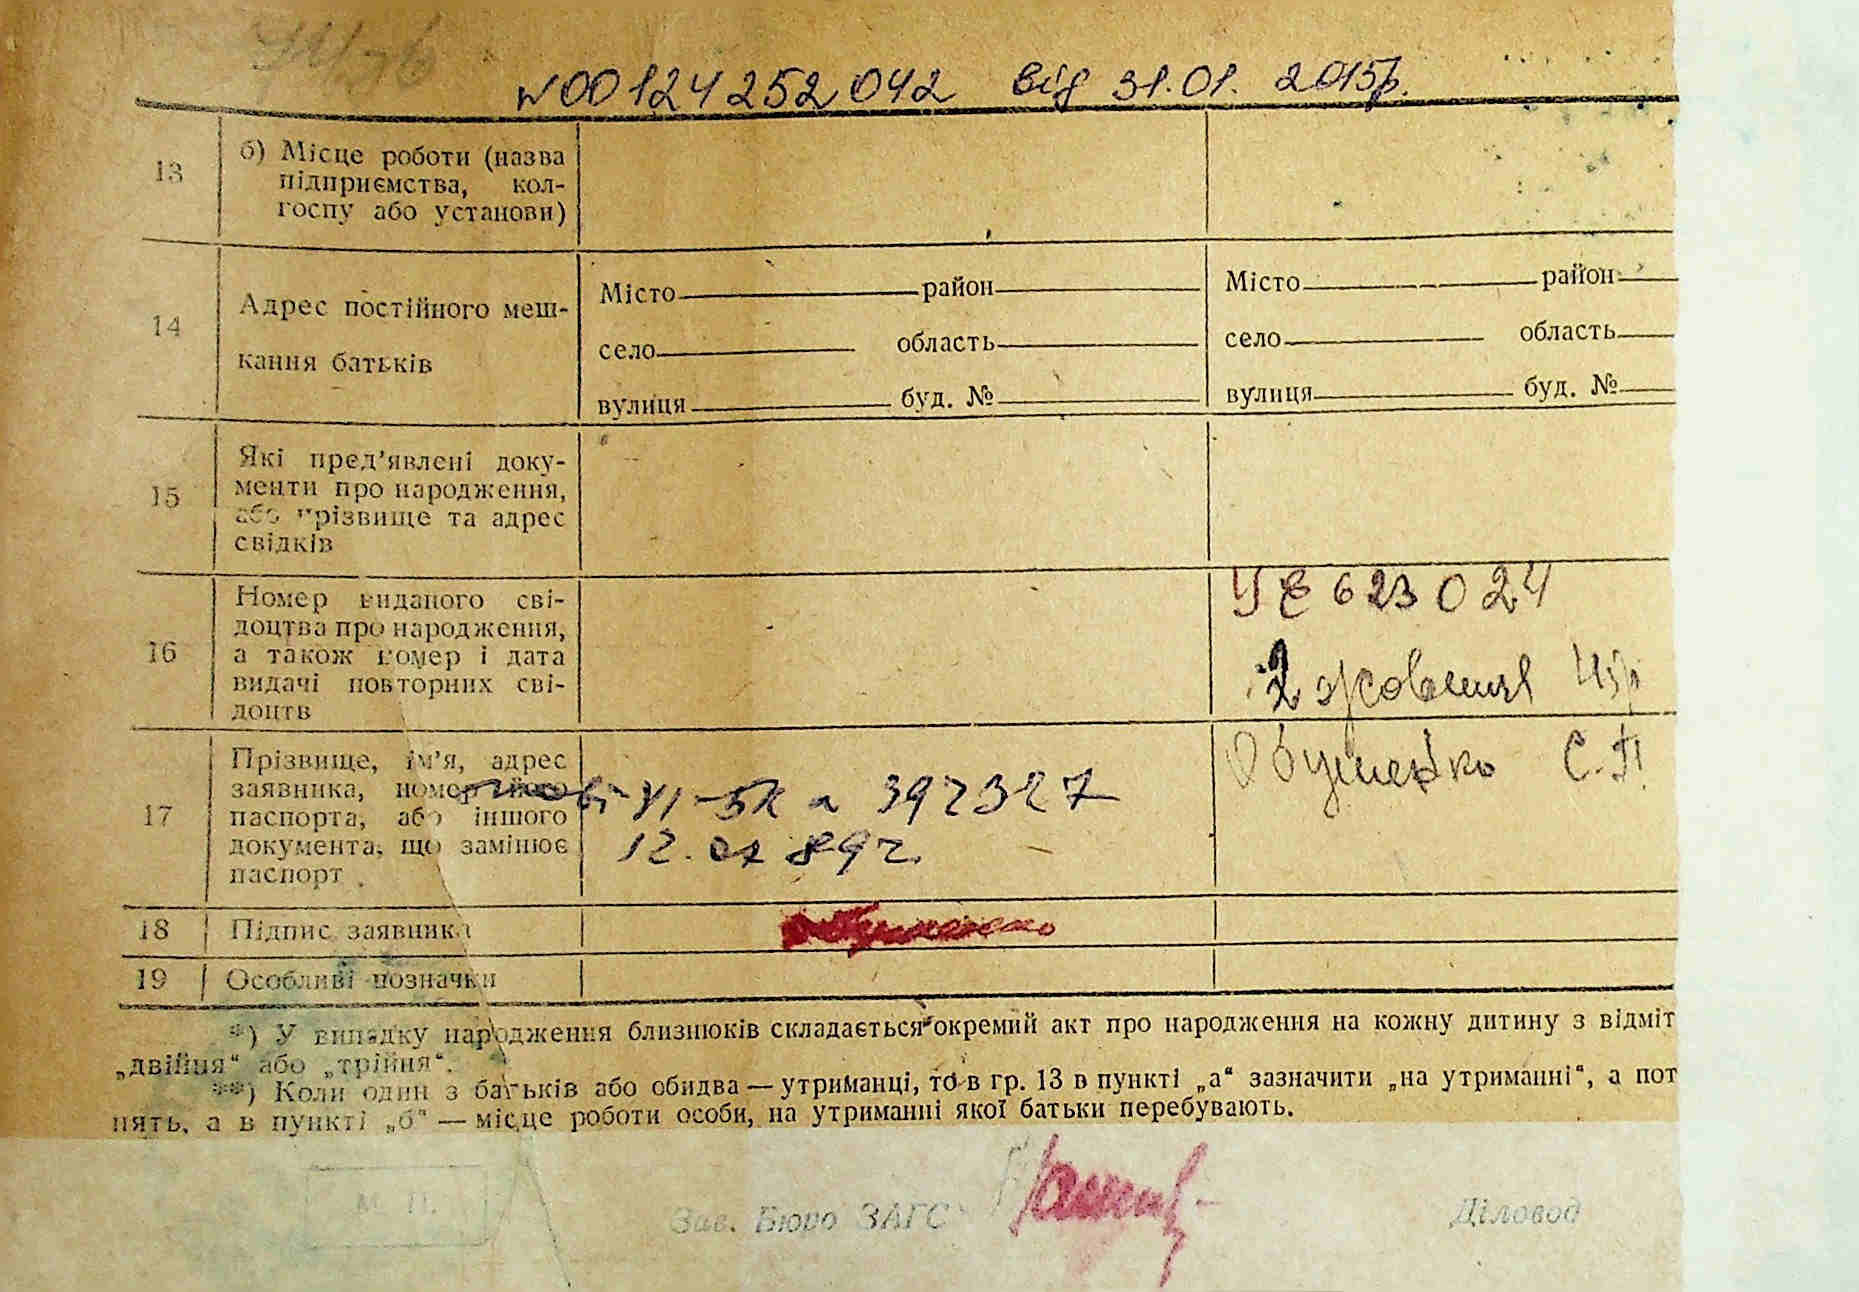 N00124252042 від 31.01.2015р.
13 б) Місце роботи (назва
підприємства, кол-
госпу або установи)
14 Адрес постійного меш-
кання батьків
Місто район
село область
вулиця буд. №
Місто район
село область
вулиця буд. №
15 Які пред'явлені доку-
менти про народження,
або прізвище та адрес
свідків
16 Номер виданого сві-
доцтва про народження,
а також номер і дата
видачі повторних сві-
доцтв
УЕ 623024
2 жовтня
17 Прізвище, ім'я, адрес
заявника, номер його
паспорта, або іншого
документа, що замінює
паспорт
VI-БК 392327
12.07 89г.
С.П.
18 Підпис заявника
19 Особливі позначки
*) У випадку народження близнюків складається окремий акт про народження на кожну дитину з відміт
„двійня“ або „трійня“.
**) Коли один з батьків або обидва — утриманці, то в гр. 13 в пункті „а“ зазначити „на утриманні“, а пот
нять, а в пункті „б“ — місце роботи особи, на утриманні якої батьки перебувають.
М. П.
Зав. Бюро ЗАГС
Діловод